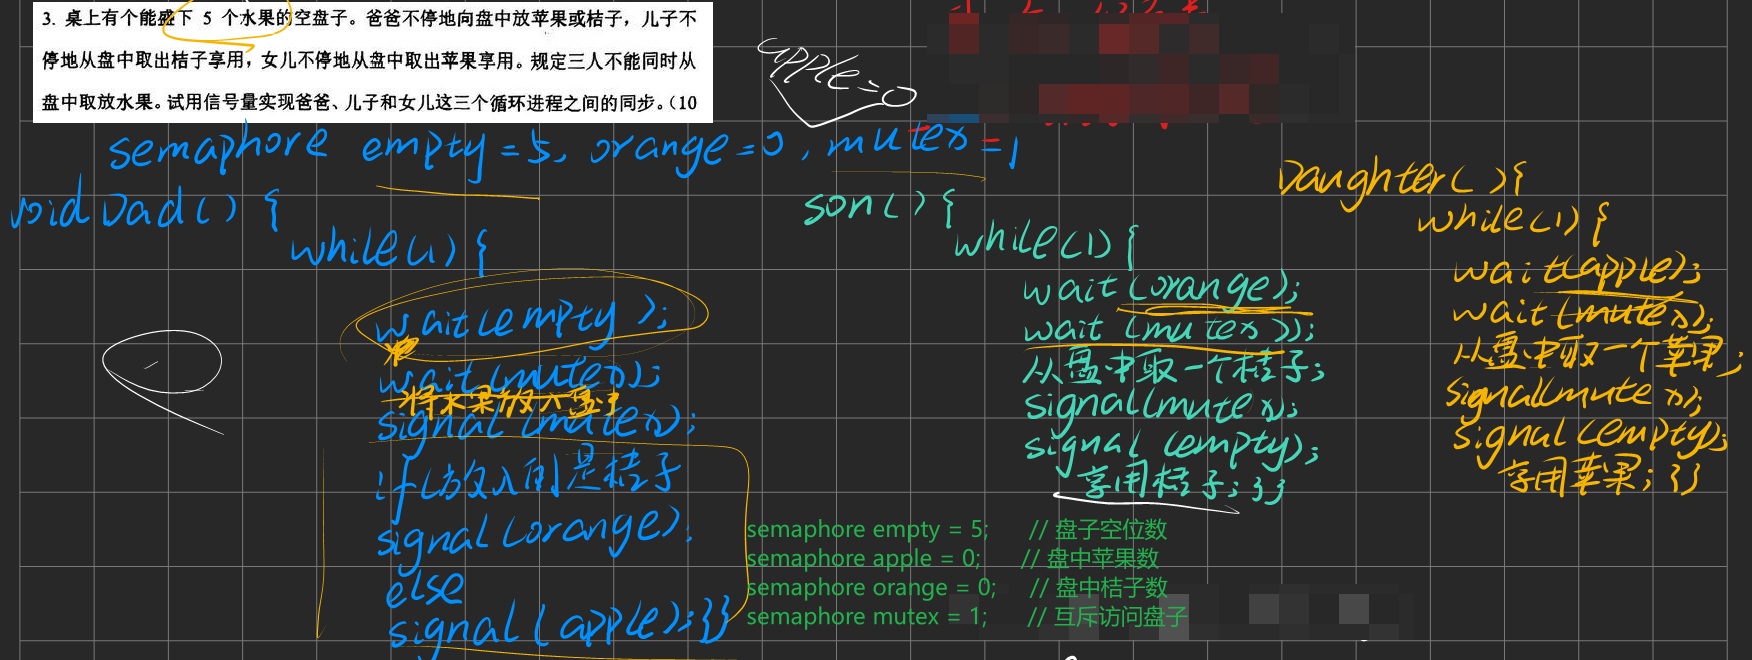 3. 桌上有个能盛下 5 个水果的空盘子。爸爸不停地向盘中放苹果或桔子，儿子不
停地从盘中取出桔子享用，女儿不停地从盘中取出苹果享用。规定三人不能同时从
盘中取放水果。试用信号量实现爸爸、儿子和女儿这三个循环进程之间的同步。（10
apple=0
semaphore empty=5, orange=0, mutex=1
void Dad() {
while(1) {
wait(empty);
wait(mutex);
将水果放入盘中
signal(mutex);
if(放入的是桔子
signal(orange);
else
signal(apple);}}
son() {
while(1) {
wait(orange);
wait(mutex);
从盘中取一个桔子;
signal(mutex);
signal(empty);
享用桔子;}}
Daughter() {
while(1) {
wait(apple);
wait(mutex);
从盘中取一个苹果;
signal(mutex);
signal(empty);
享用苹果;}}
semaphore empty = 5; // 盘子空位数
semaphore apple = 0; // 盘中苹果数
semaphore orange = 0; // 盘中桔子数
semaphore mutex = 1; // 互斥访问盘子